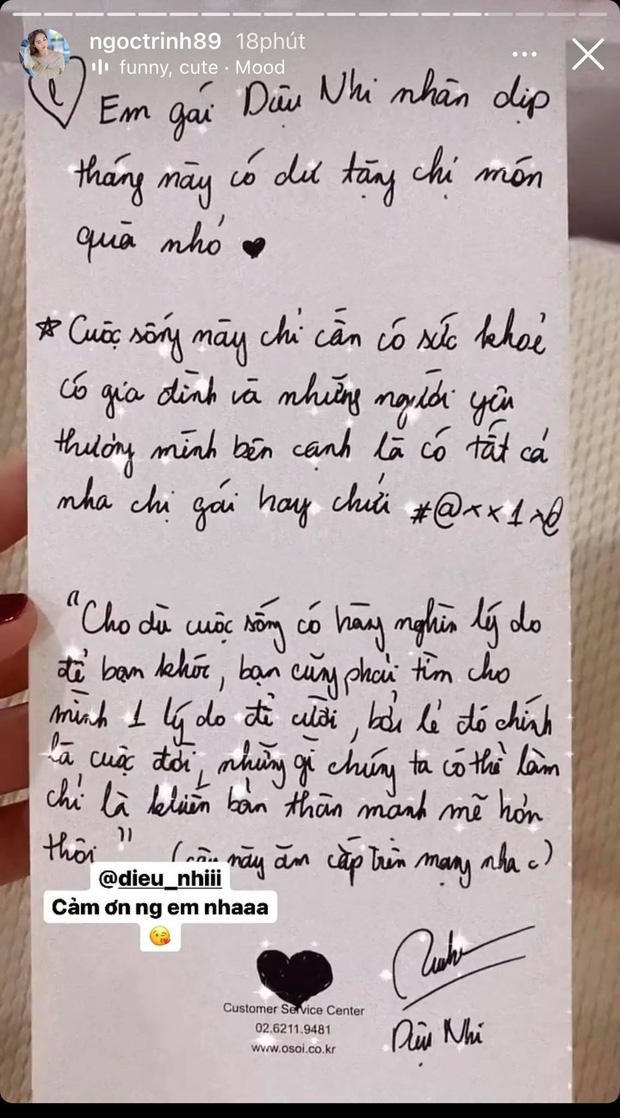 ngoctrinh89 18phút
funny, cute · Mood
Em gái Diệu Nhi nhân dịp
tháng này có dư tặng chị món
quà nhỏ
Cuộc sống này chỉ cần có sức khoẻ
có gia đình và những người yêu
thương mình bên cạnh là có tất cả
nha chị gái hay chửi #@xx1x@
"Cho dù cuộc sống có hàng nghìn lý do
để bạn khóc, bạn cũng phải tìm cho
mình 1 lý do để cười, bởi lẽ đó chính
là cuộc đời, những gì chúng ta có thể làm
chỉ là khiến bản thân mạnh mẽ hơn
thôi" (câu này ăn cắp trên mạng nha c)
@dieu_nhiii
Cảm ơn ng em nhaaa
Customer Service Center
02.6211.9481
www.osoi.co.kr
Diệu Nhi